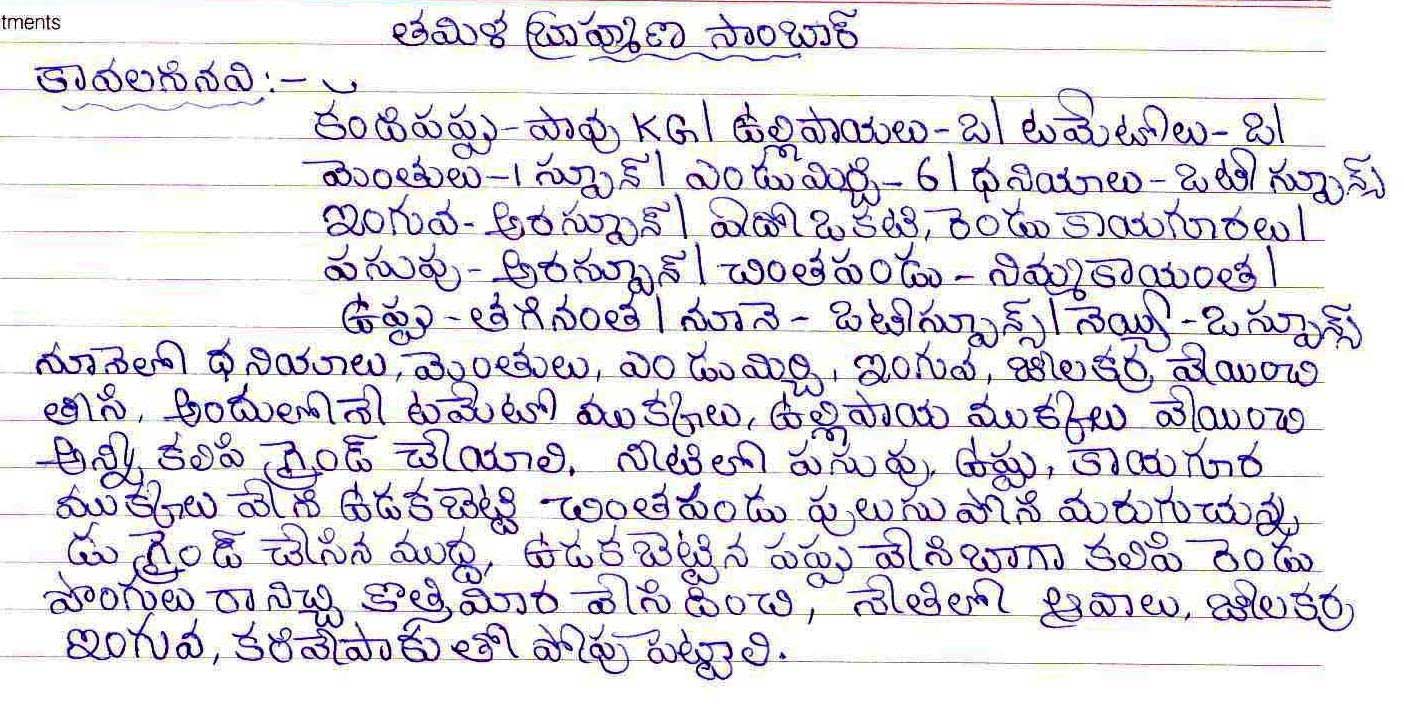 tments
తమిళ బ్రాహ్మణ సాంబార్
కావలసినవి:-
కందిపప్పు-పావు KG| ఉల్లిపాయలు-2| టమేటోలు-2|
మెంతులు-1 స్పూన్| ఎండుమిర్చి-6| ధనియాలు-2టీ స్పూన్స్
ఇంగువ-అరస్పూన్| ఏదో ఒకటి, రెండు కాయగూరలు|
పసుపు-అరస్పూన్| చింతపండు-నిమ్మకాయంత|
ఉప్పు-తగినంత| నూనె-2టీస్పూన్స్| నెయ్యి-2స్పూన్స్
నూనెలో ధనియాలు, మెంతులు, ఎండుమిర్చి, ఇంగువ, జీలకర్ర వేయించి
తీసి, అందులోనే టమేటో ముక్కలు, ఉల్లిపాయ ముక్కలు వేయించి
అన్నీ కలిపి గ్రైండ్ చేయాలి. నీటిలో పసుపు, ఉప్పు, కాయగూర
ముక్కలు వేసి ఉడకబెట్టి చింతపండు పులుసు పోసి మరుగుచున్న
డు గ్రైండ్ చేసిన ముద్ద, ఉడకబెట్టిన పప్పు వేసిబాగా కలిపి రెండు
పొంగులు రానిచ్చి కొత్తిమీర వేసి దించి, నేతిలో ఆవాలు, జీలకర్ర
ఇంగువ, కరివేపాకుతో పోపు పెట్టాలి.